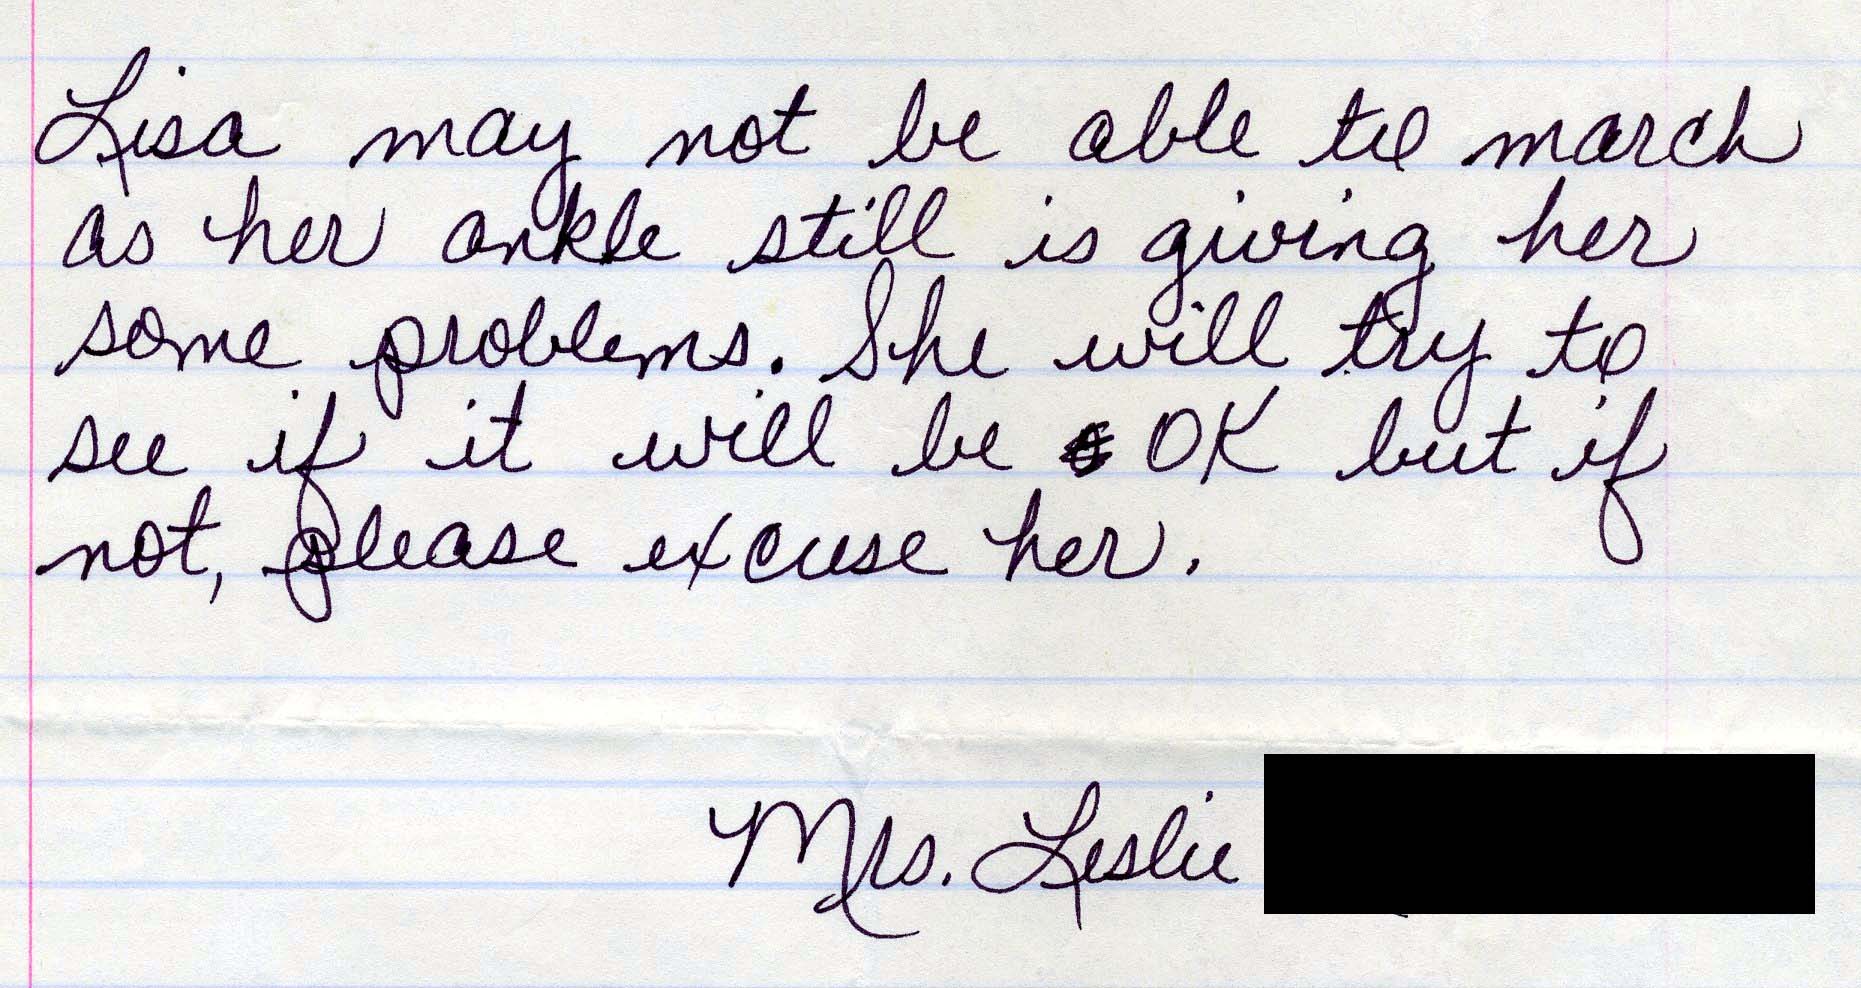 Lisa may not be able to march
as her ankle still is giving her
some problems. She will try to
see if it will be OK but if
not, please excuse her.
Mrs. Leslie